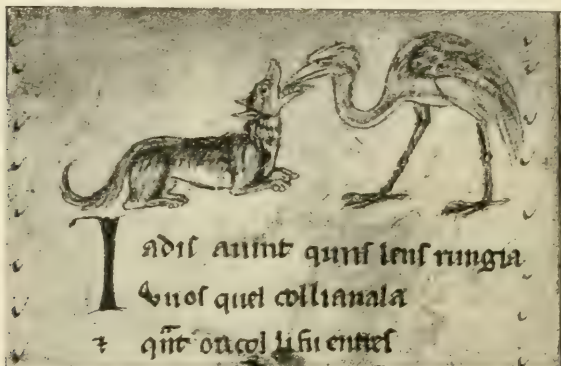 Iadis auint quns leus rungia
vnos quel colliauala
⁊ qnt ou col li fu entres